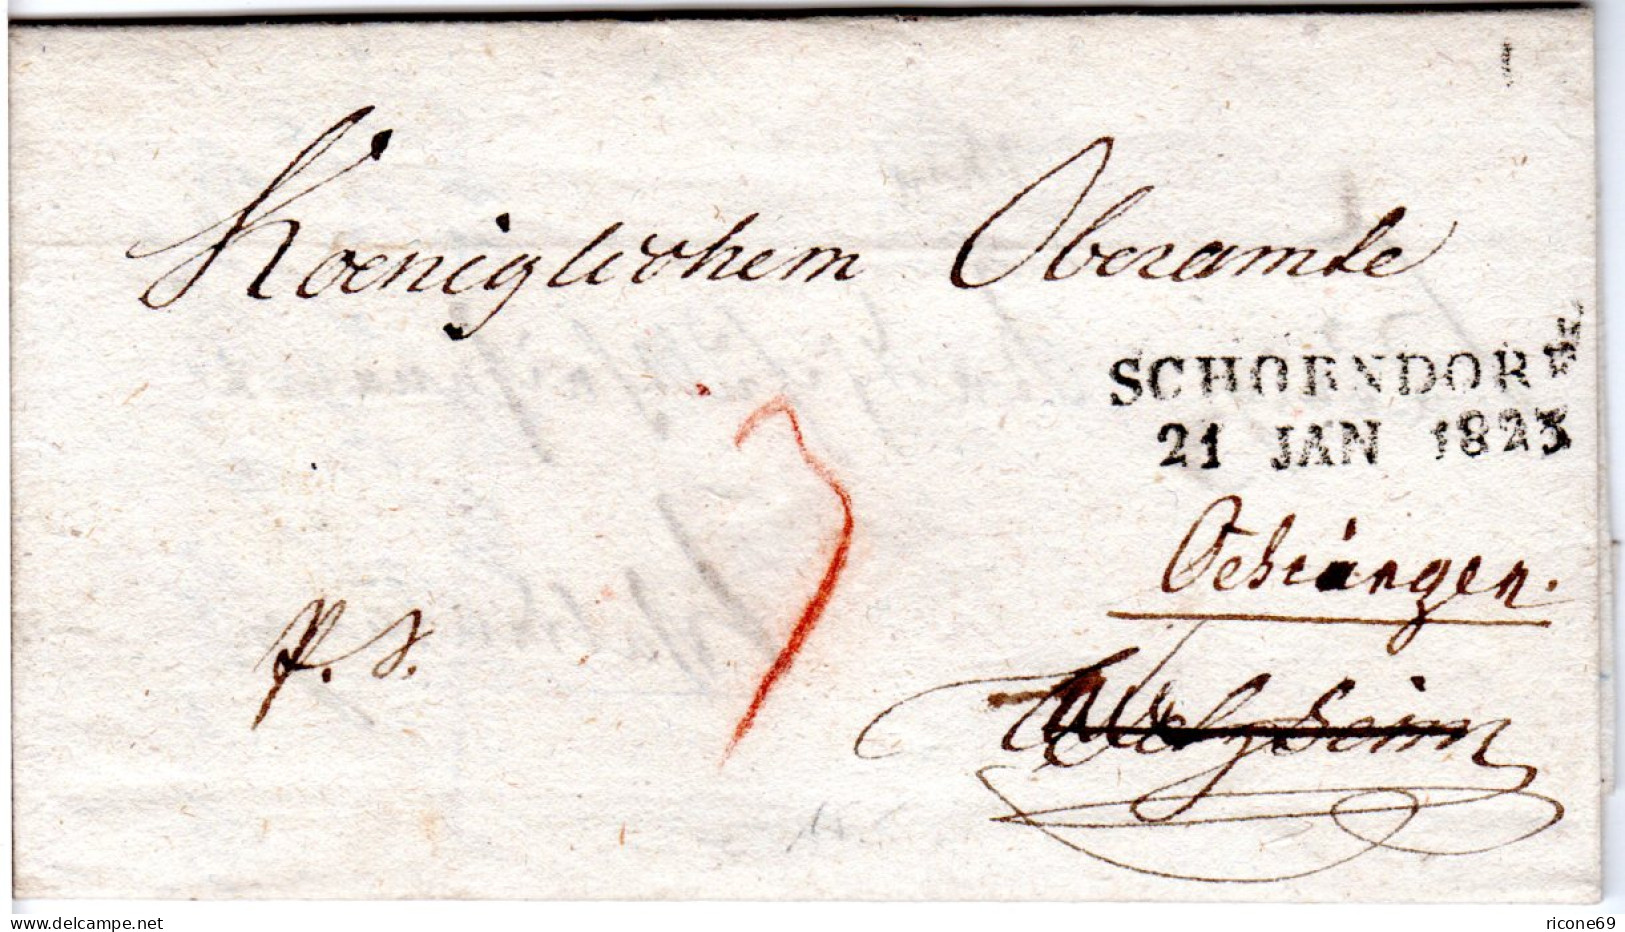 Koeniglichem Oberamte
SCHORNDORF
21 JAN 1823
Oehringen.
p. s.
Welzheim
delcampe.net
ricone69